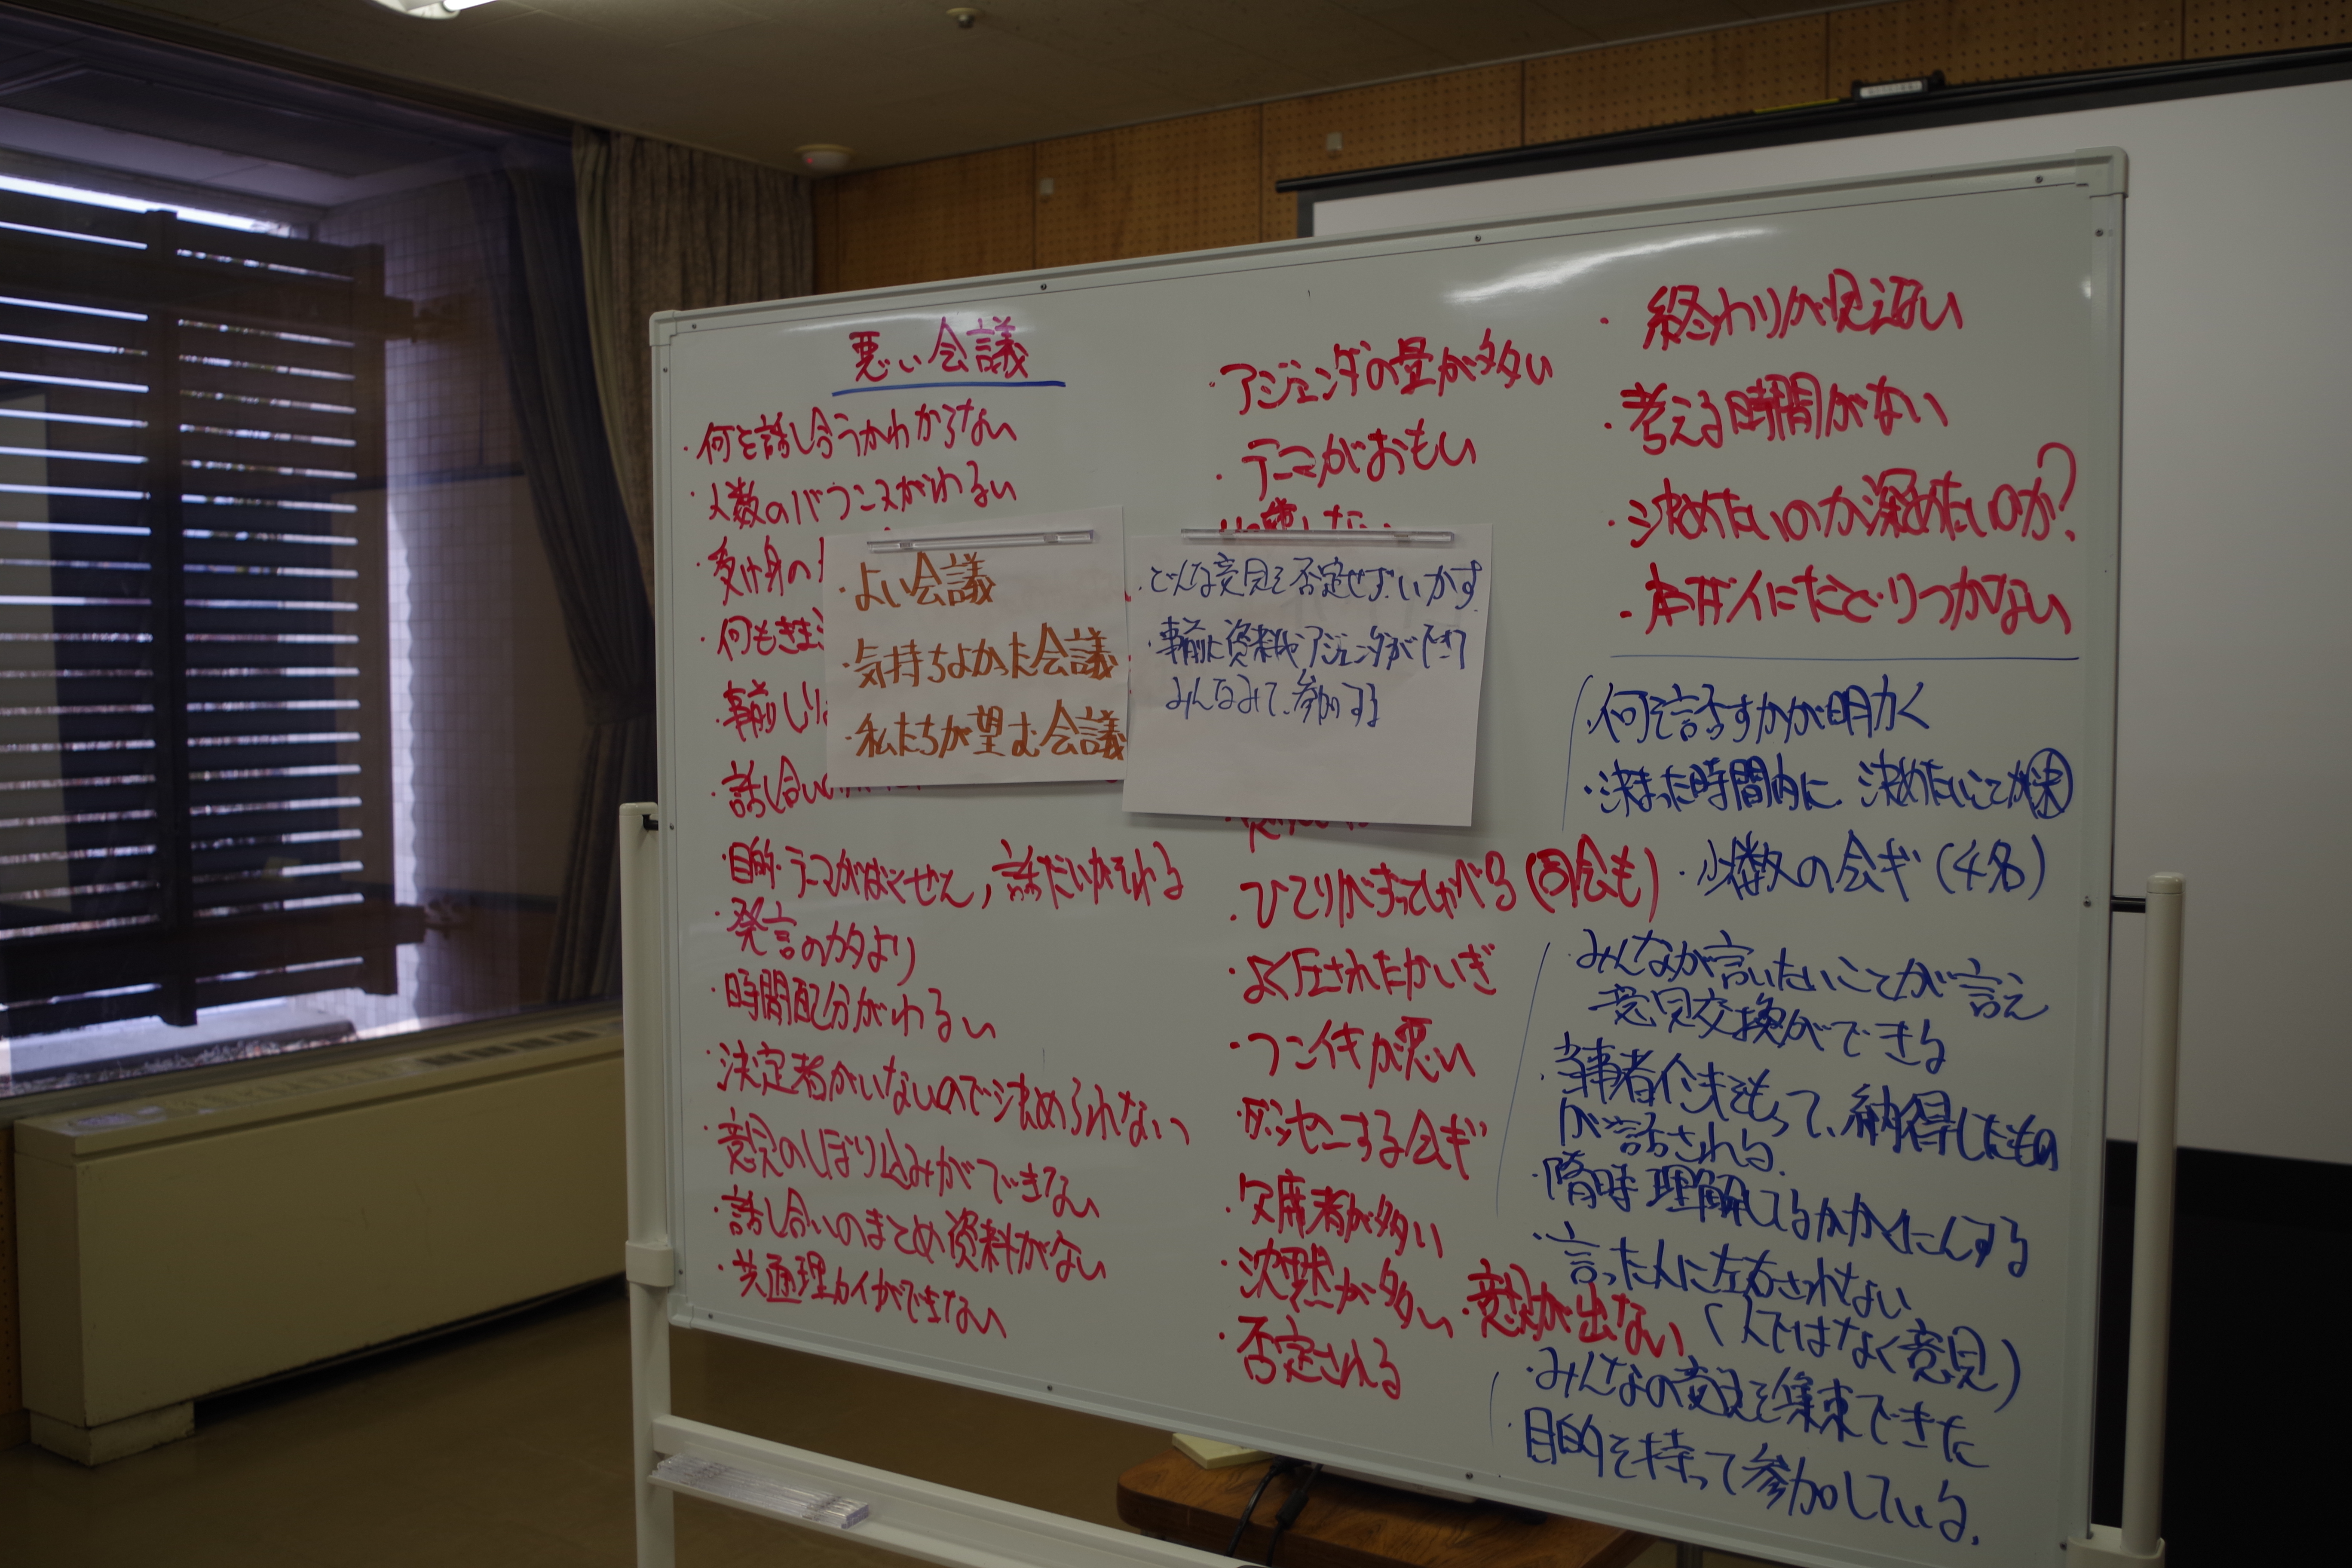 悪い会議
・何を話し合うかわからない
・人数のバランスがわるい
・受け身の
・何もきま
・事前しり
・話し合い
・目的・テーマがばくぜん, 話だいがそれる
・発言のカタより
・時間配分がわるい
・決定者がいないので決められない
・意見のしぼり込みができない
・話し合いのまとめ資料がない
・共通理カイができない
・よい会議
・気持ちよかった会議
・私たちが望む会議
・アジェンダの量が多い
・テーマがおもい
・どんな意見も否定せず、いかす
・事前に資料やアジェンダができて
みんなみて、参加する
・ひとりがずっとしゃべる (司会も)
・よく圧されたかいぎ
・フンイキが悪い
・ダッセンする会ギ
・欠席者が多い
・沈黙が多い ・意見が出ない
・否定される
・終わりが見えない
・考える時間がない
・決めたいのか深めたいのか?
・本ダイにたどりつかない
・何を話すかが明カク
・決まった時間内に、決めたいことが決
・少数の会ギ (4名)
・みんなが言いたいことが言え
意見交換ができる
・当事者イしきをもって、納得したもの
が話される.
・随時理解してるかかくにんする
・言った人に左右されない
(人ではなく意見)
・みんなの意見を集束できた
・目的を持って参加している.